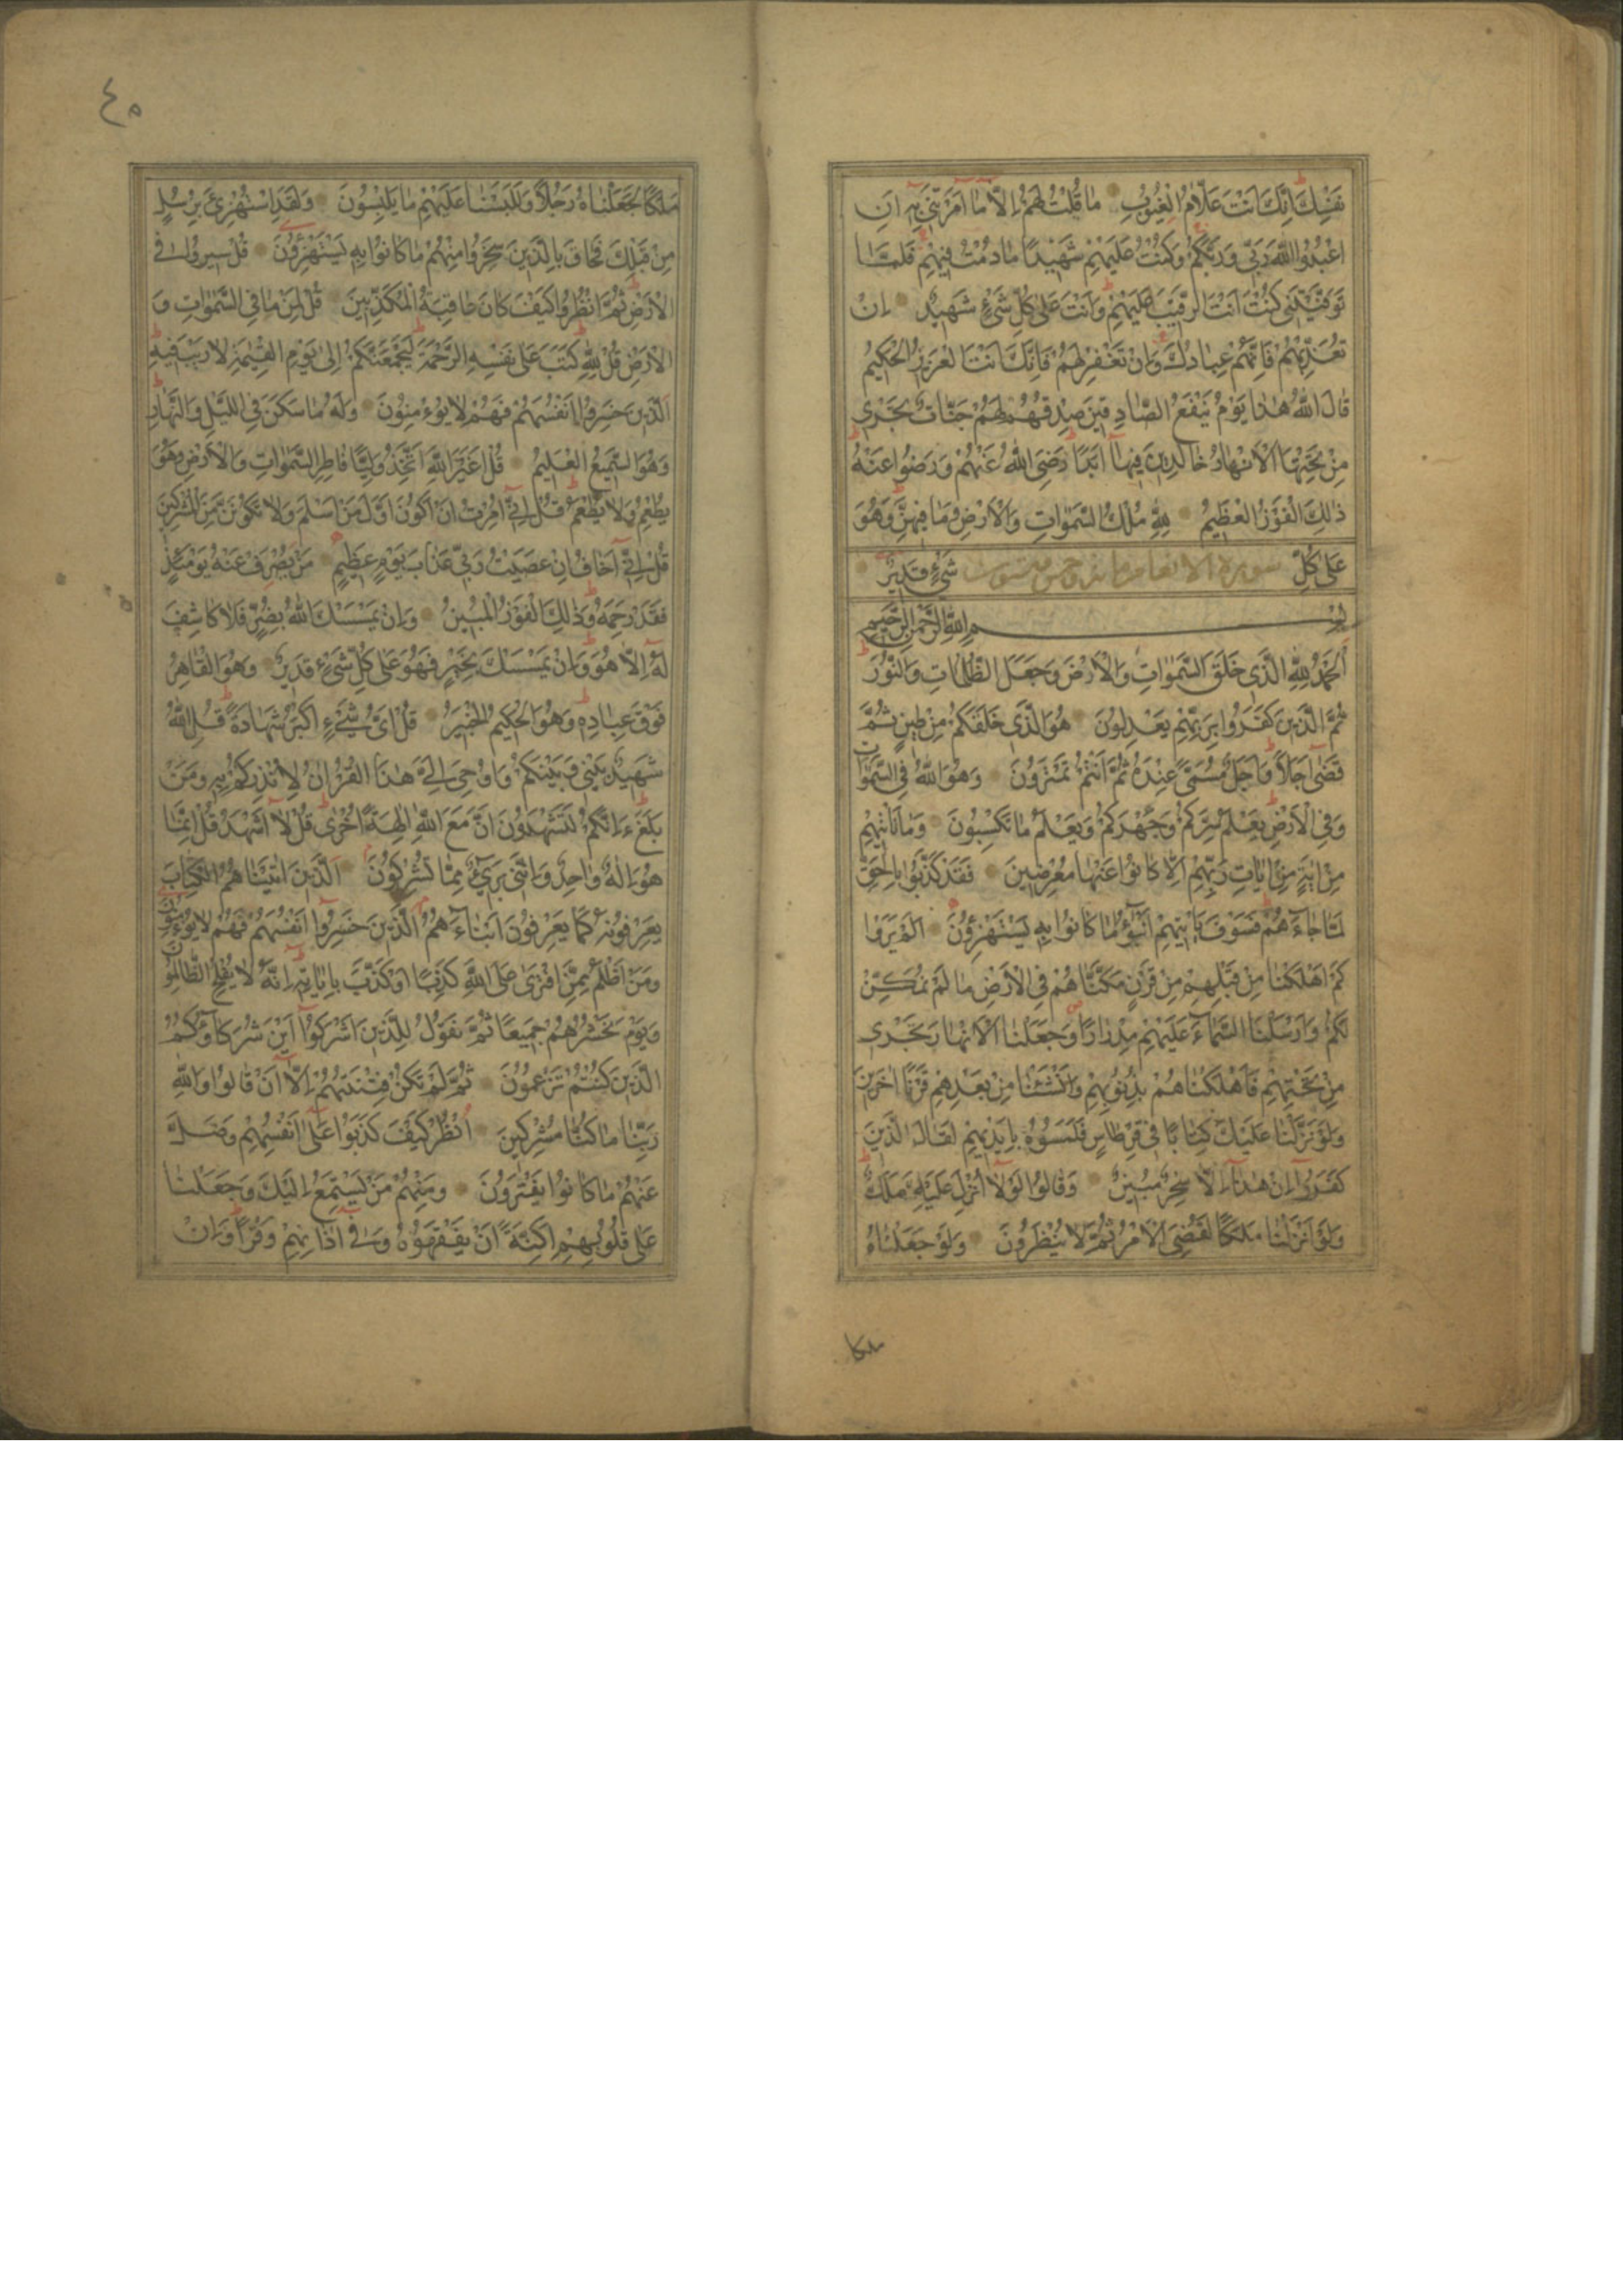 نَفْسِكَ اِنَّكَ اَنْتَ عَلَّامُ الْغُيُوبِ مٰا قُلْتُ لَهُمْ اِلَّا مٰا اَمَرْتَنى بِهِ اَنِ
اعْبُدُوا اللّٰهَ رَبّى وَرَبَّكُمْ وَكُنْتُ عَلَيْهِمْ شَهيدًا مٰا دُمْتُ فيهِمْ فَلَمَّا
تَوَفَّيْتَنى كُنْتَ اَنْتَ الرَّقيبَ عَلَيْهِمْ وَاَنْتَ عَلىٰ كُلِّ شَىْءٍ شَهيدٌ اِنْ
تُعَذِّبْهُمْ فَاِنَّهُمْ عِبٰادُكَ وَاِنْ تَغْفِرْ لَهُمْ فَاِنَّكَ اَنْتَ الْعَزيزُ الْحَكيمُ
قٰالَ اللّٰهُ هٰذٰا يَوْمُ يَنْفَعُ الصّٰادِقينَ صِدْقُهُمْ لَهُمْ جَنّٰاتٌ تَجْرى
مِنْ تَحْتِهَا الْاَنْهٰارُ خٰالِدينَ فيهٰا اَبَدًا رَضِىَ اللّٰهُ عَنْهُمْ وَرَضُوا عَنْهُ
ذٰلِكَ الْفَوْزُ الْعَظيمُ لِلّٰهِ مُلْكُ السَّمٰوٰاتِ وَالْاَرْضِ وَمٰا فيهِنَّ وَهُوَ
عَلىٰ كُلِّ سورة الانعام مائة وخمس وستون شَىْءٍ قَديرٌ
بِسْمِ اللّٰهِ الرَّحْمٰنِ الرَّحيمِ
اَلْحَمْدُ لِلّٰهِ الَّذى خَلَقَ السَّمٰوٰاتِ وَالْاَرْضَ وَجَعَلَ الظُّلُمٰاتِ وَالنُّورَ
ثُمَّ الَّذينَ كَفَرُوا بِرَبِّهِمْ يَعْدِلُونَ هُوَ الَّذى خَلَقَكُمْ مِنْ طينٍ ثُمَّ
قَضىٰ اَجَلًا وَاَجَلٌ مُسَمًّى عِنْدَهُ ثُمَّ اَنْتُمْ تَمْتَرُونَ وَهُوَ اللّٰهُ فِى السَّمٰوٰاتِ
وَفِى الْاَرْضِ يَعْلَمُ سِرَّكُمْ وَجَهْرَكُمْ وَيَعْلَمُ مٰا تَكْسِبُونَ وَمٰا تَاْتيهِمْ
مِنْ اٰيَةٍ مِنْ اٰيٰاتِ رَبِّهِمْ اِلّٰا كٰانُوا عَنْهٰا مُعْرِضينَ فَقَدْ كَذَّبُوا بِالْحَقِّ
لَمّٰا جٰاءَهُمْ فَسَوْفَ يَاْتيهِمْ اَنْبٰؤُا مٰا كٰانُوا بِهِ يَسْتَهْزِؤُنَ اَلَمْ يَرَوْا
كَمْ اَهْلَكْنٰا مِنْ قَبْلِهِمْ مِنْ قَرْنٍ مَكَّنّٰاهُمْ فِى الْاَرْضِ مٰا لَمْ نُمَكِّنْ
لَكُمْ وَاَرْسَلْنَا السَّمٰاءَ عَلَيْهِمْ مِدْرٰارًا وَجَعَلْنَا الْاَنْهٰارَ تَجْرى
مِنْ تَحْتِهِمْ فَاَهْلَكْنٰاهُمْ بِذُنُوبِهِمْ وَاَنْشَئْنٰا مِنْ بَعْدِهِمْ قَرْنًا اٰخَرينَ
وَلَوْ نَزَّلْنٰا عَلَيْكَ كِتٰابًا فى قِرْطٰاسٍ فَلَمَسُوهُ بِاَيْديهِمْ لَقٰالَ الَّذينَ
كَفَرُوا اِنْ هٰذٰا اِلّٰا سِحْرٌ مُبينٌ وَقٰالُوا لَوْلٰا اُنْزِلَ عَلَيْهِ مَلَكٌ
وَلَوْ اَنْزَلْنٰا مَلَكًا لَقُضِىَ الْاَمْرُ ثُمَّ لٰا يُنْظَرُونَ وَلَوْ جَعَلْنٰاهُ
ملكا
٤٥
مَلَكًا لَجَعَلْنٰاهُ رَجُلًا وَلَلَبَسْنٰا عَلَيْهِمْ مٰا يَلْبِسُونَ وَلَقَدِ اسْتُهْزِئَ بِرُسُلٍ
مِنْ قَبْلِكَ فَحٰاقَ بِالَّذينَ سَخِرُوا مِنْهُمْ مٰا كٰانُوا بِهِ يَسْتَهْزِؤُنَ قُلْ سيرُوا فِى
الْاَرْضِ ثُمَّ انْظُرُوا كَيْفَ كٰانَ عٰاقِبَةُ الْمُكَذِّبينَ قُلْ لِمَنْ مٰا فِى السَّمٰوٰاتِ وَ
الْاَرْضِ قُلْ لِلّٰهِ كَتَبَ عَلىٰ نَفْسِهِ الرَّحْمَةَ لَيَجْمَعَنَّكُمْ اِلىٰ يَوْمِ الْقِيٰمَةِ لٰا رَيْبَ فيهِ
اَلَّذينَ خَسِرُوا اَنْفُسَهُمْ فَهُمْ لٰا يُؤْمِنُونَ وَلَهُ مٰا سَكَنَ فِى اللَّيْلِ وَالنَّهٰارِ
وَهُوَ السَّميعُ الْعَليمُ قُلْ اَغَيْرَ اللّٰهِ اَتَّخِذُ وَلِيًّا فٰاطِرِ السَّمٰوٰاتِ وَالْاَرْضِ وَهُوَ
يُطْعِمُ وَلٰا يُطْعَمُ قُلْ اِنّى اُمِرْتُ اَنْ اَكُونَ اَوَّلَ مَنْ اَسْلَمَ وَلٰا تَكُونَنَّ مِنَ الْمُشْرِكينَ
قُلْ اِنّى اَخٰافُ اِنْ عَصَيْتُ رَبّى عَذٰابَ يَوْمٍ عَظيمٍ مَنْ يُصْرَفْ عَنْهُ يَوْمَئِذٍ
فَقَدْ رَحِمَهُ وَذٰلِكَ الْفَوْزُ الْمُبينُ وَاِنْ يَمْسَسْكَ اللّٰهُ بِضُرٍّ فَلٰا كٰاشِفَ
لَهُ اِلّٰا هُوَ وَاِنْ يَمْسَسْكَ بِخَيْرٍ فَهُوَ عَلىٰ كُلِّ شَىْءٍ قَديرٌ وَهُوَ الْقٰاهِرُ
فَوْقَ عِبٰادِهِ وَهُوَ الْحَكيمُ الْخَبيرُ قُلْ اَىُّ شَىْءٍ اَكْبَرُ شَهٰادَةً قُلِ اللّٰهُ
شَهيدٌ بَيْنى وَبَيْنَكُمْ وَاُوحِىَ اِلَىَّ هٰذَا الْقُرْاٰنُ لِاُنْذِرَكُمْ بِهِ وَمَنْ
بَلَغَ ءَاِنَّكُمْ لَتَشْهَدُونَ اَنَّ مَعَ اللّٰهِ اٰلِهَةً اُخْرىٰ قُلْ لٰا اَشْهَدُ قُلْ اِنَّمٰا
هُوَ اِلٰهٌ وٰاحِدٌ وَاِنَّنى بَرىءٌ مِمّٰا تُشْرِكُونَ اَلَّذينَ اٰتَيْنٰاهُمُ الْكِتٰابَ
يَعْرِفُونَهُ كَمٰا يَعْرِفُونَ اَبْنٰاءَهُمُ الَّذينَ خَسِرُوا اَنْفُسَهُمْ فَهُمْ لٰا يُؤْمِنُونَ
وَمَنْ اَظْلَمُ مِمَّنِ افْتَرىٰ عَلَى اللّٰهِ كَذِبًا اَوْ كَذَّبَ بِاٰيٰاتِهِ اِنَّهُ لٰا يُفْلِحُ الظّٰالِمُونَ
وَيَوْمَ نَحْشُرُهُمْ جَميعًا ثُمَّ نَقُولُ لِلَّذينَ اَشْرَكُوا اَيْنَ شُرَكٰاؤُكُمُ
الَّذينَ كُنْتُمْ تَزْعُمُونَ ثُمَّ لَمْ تَكُنْ فِتْنَتُهُمْ اِلّٰا اَنْ قٰالُوا وَاللّٰهِ
رَبِّنٰا مٰا كُنّٰا مُشْرِكينَ اُنْظُرْ كَيْفَ كَذَبُوا عَلىٰ اَنْفُسِهِمْ وَضَلَّ
عَنْهُمْ مٰا كٰانُوا يَفْتَرُونَ وَمِنْهُمْ مَنْ يَسْتَمِعُ اِلَيْكَ وَجَعَلْنٰا
عَلىٰ قُلُوبِهِمْ اَكِنَّةً اَنْ يَفْقَهُوهُ وَفى اٰذٰانِهِمْ وَقْرًا وَاِنْ